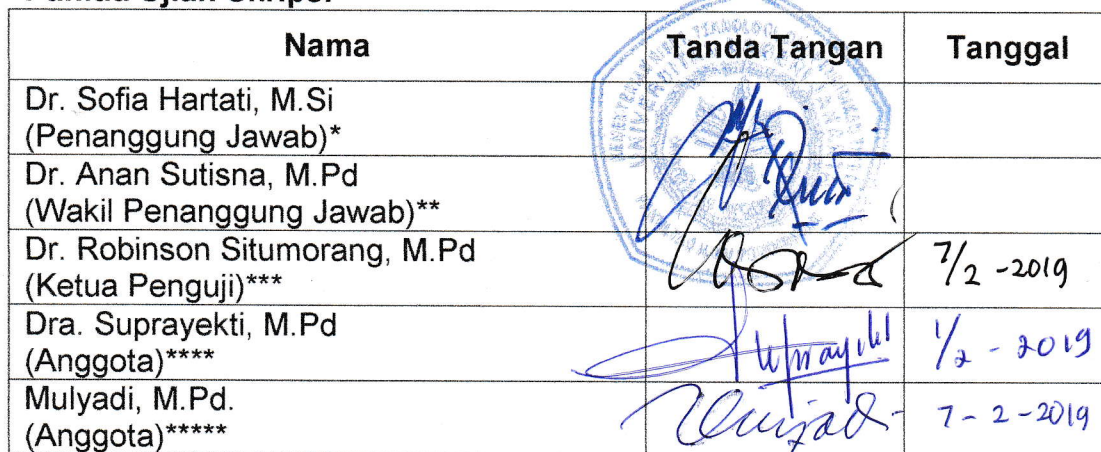 Panitia Ujian Skripsi
Nama Tanda Tangan Tanggal
Dr. Sofia Hartati, M.Si
(Penanggung Jawab)*
Dr. Anan Sutisna, M.Pd
(Wakil Penanggung Jawab)**
Dr. Robinson Situmorang, M.Pd
(Ketua Penguji)*** 7/2 -2019
Dra. Suprayekti, M.Pd
(Anggota)**** 1/2 - 2019
Mulyadi, M.Pd.
(Anggota)***** 7-2-2019